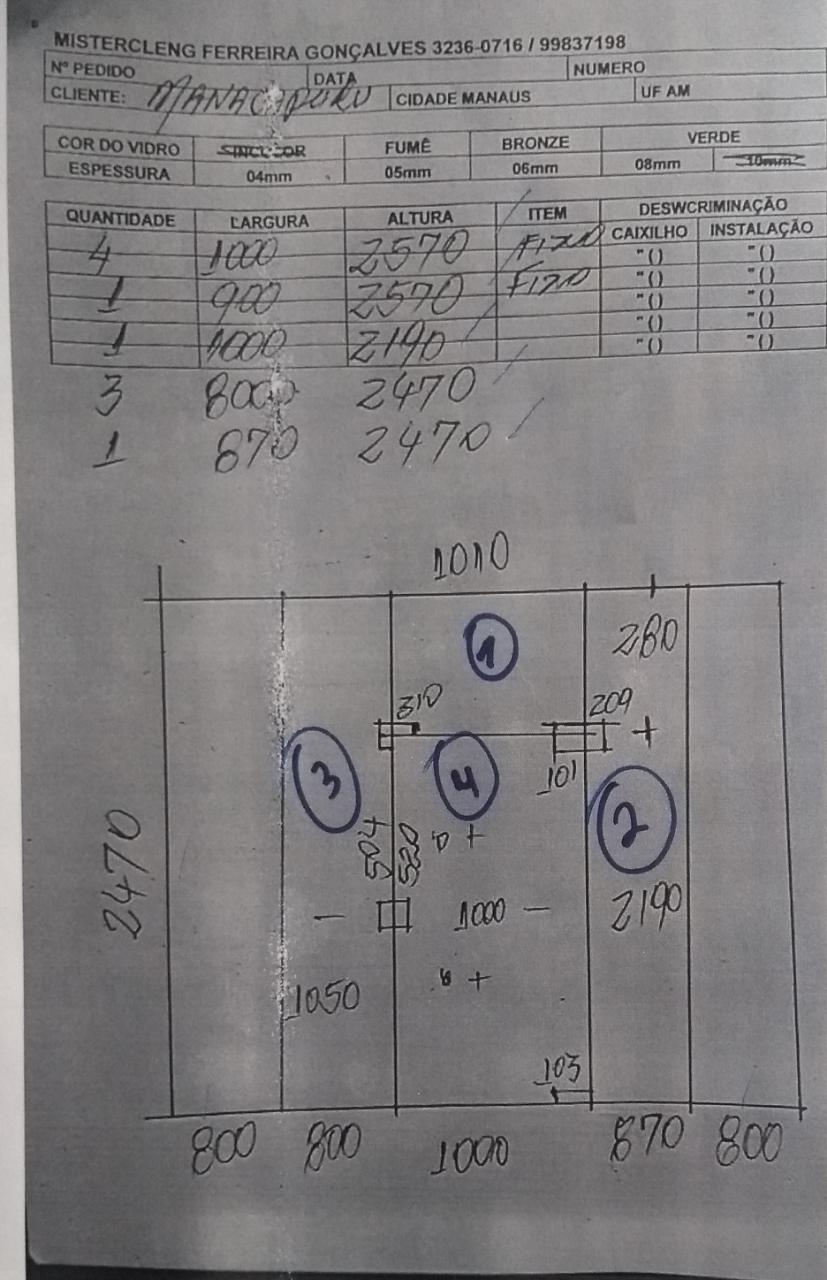 MISTERCLENG FERREIRA GONÇALVES 3236-0716 / 99837198
Nº PEDIDO DATA NUMERO
CLIENTE: MANACAPURU CIDADE MANAUS UF AM
COR DO VIDRO INCOLOR FUMÊ BRONZE VERDE
ESPESSURA 04mm 05mm 06mm 08mm 10mm
QUANTIDADE LARGURA ALTURA ITEM DESWCRIMINAÇÃO
CAIXILHO INSTALAÇÃO
4 1000 2570 FIXO "() "()
1 900 2570 FIXO "() "()
"() "()
1 1000 2190 "() "()
"() "()
3 8000 2470
1 870 2470
1010
1 280
310 209
+
3 4 101 2
504 520 +
2470
- 1000 - 2190
1050 +
103
800 800 1000 870 800